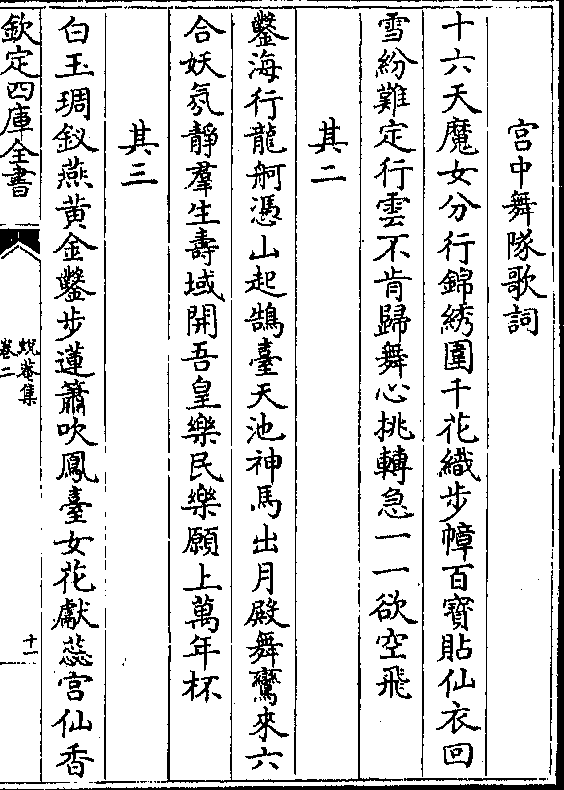 宫中舞隊歌詞
十六天魔女分行錦綉圍千花織步幛百寳貼仙衣回
雪紛難定行雲不肯歸舞心挑轉急一一欲空飛
其二
鑿海行龍舸憑山起鵠臺天池神馬出月殿舞鸞來六
合妖氛靜羣生壽域開吾皇樂民樂願上萬年杯
其三
白玉琱釵燕黄金鑿步蓮簫吹鳳臺女花獻蕊宫仙香
欽定四庫全書
蛻菴集
卷二
十一